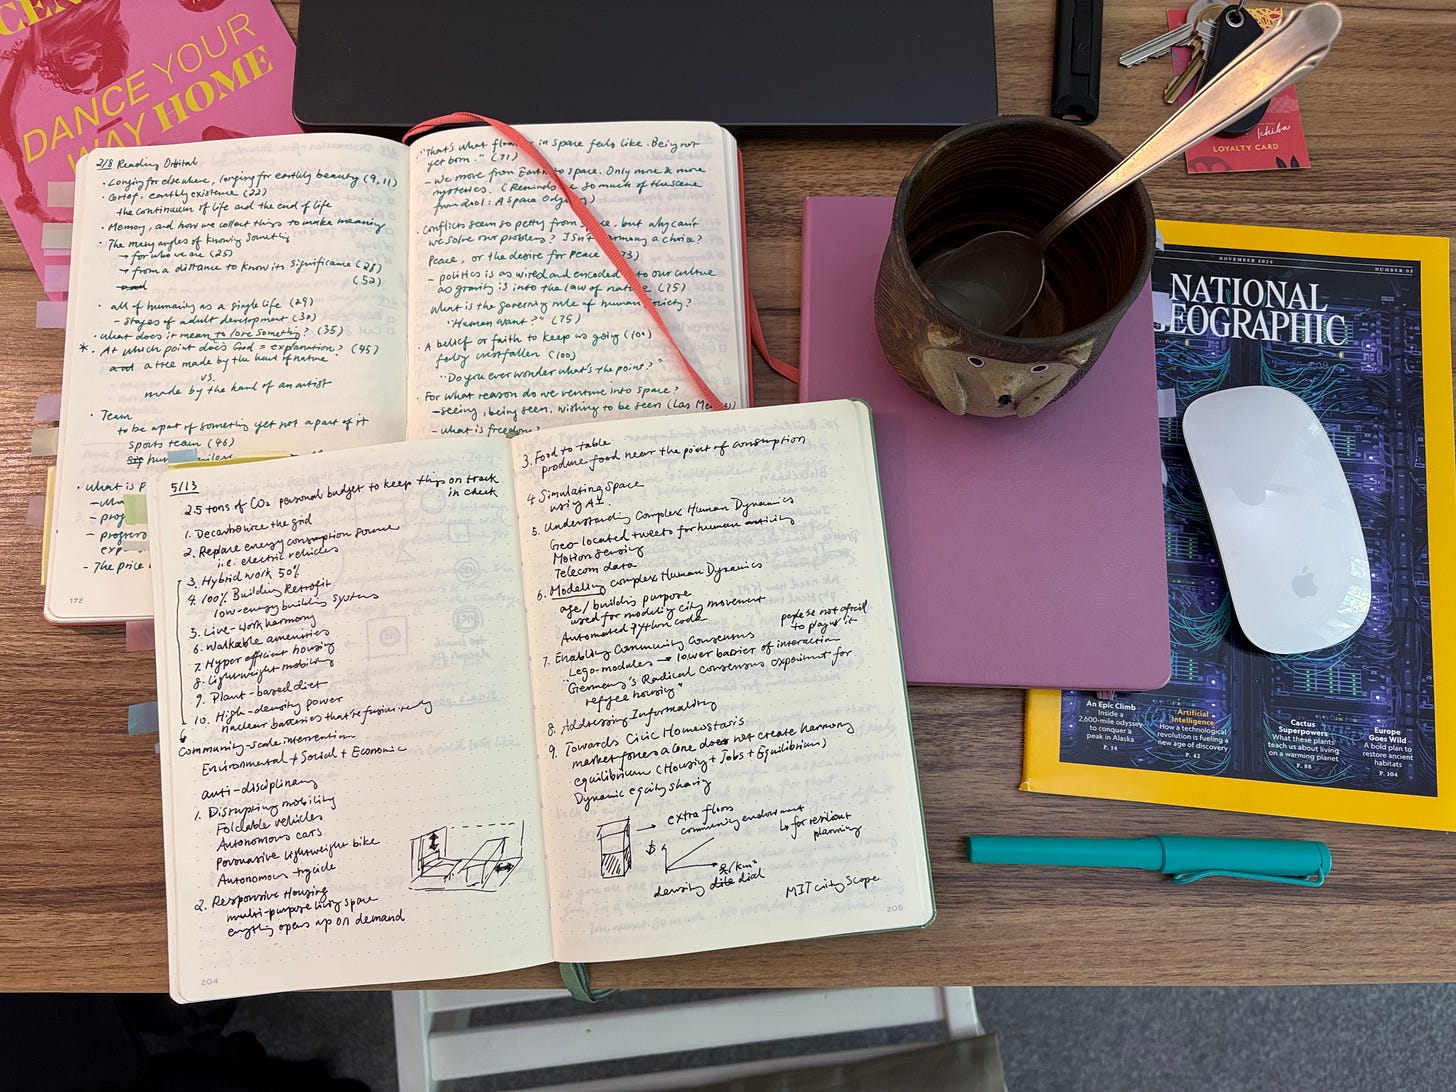 CEN
DANCE YOUR
WAY HOME
2/8 Reading Orbital
· Longing for elsewhere, longing for earthly beauty (9, 11)
· Grief, earthly existence (22)
the continuum of life and the end of life
· Memory, and how we collect things to make meaning
· The many angles of knowing something
→ for who we are (25)
→ from a distance to know its significance (28)
(52)
· all of humanity as a single life (29)
- stages of adult development (30)
· what does it mean to lose something? (35)
* · At which point does God = explanation? (45)
a tree made by the hand of nature
vs.
made by the hand of an artist
· Team
to be apart of something yet not a part of it
sports team (46)
· what is P
- prog
- progress
exp
- The price
172
"That's what floa in space feels like. Being not
yet born." (71)
- We move from Earth to space. Only more & more
mysteries. (Reminds so much of the scene
from 2001: A Space Ody )
· Conflicts seem so petty from space, but why can't
we solve our problems? Isn't harmony a choice?
Peace, or the desire for peace 73)
- politics is as wired and encoded to our culture
as gravity is into the law of nature (75)
What is the governing rule of human society?
"Human want?" (75)
· A belief or faith to keep us going (100)
fully crestfallen (100)
"Do you ever wonder what's the point?"
· For what reason do we venture into space?
- seeing, being seen, wishing to be seen (Las Me
- what is freedom?
5/13
2.5 tons of CO2 personal budget to keep things on track
in check
1. Decarbonize the grid
2. Replace energy consumption source
i.e. electric vehicles
3. Hybrid work 50%
4. 100% Building Retrofit
low-energy building systems
5. Live-work harmony
6. Walkable amenities
7. Hyper efficient housing
8. Lightweight mobility
9. Plant-based diet
10. High-density power
nuclear batteries that're fusion-ready
Community scale intervention
Environmental + Social + Economic
anti-disciplinary
1. Disrupting mobility
Foldable vehicles
Autonomous cars
Persuasive lightweight bike
Autonomous tricycle
2. Responsive Housing
multi-purpose living space
everything opens up on demand
204
3. Food to table
produce food near the point of consumption
4. Simulating Space
using AI
5. Understanding Complex Human Dynamics
Geo-located tweets for human activity
Motion sensing
Telecom data
6. Modelling Complex Human Dynamics
age / building purpose
used for modeling city movement
Automated Python code
7. Enabling Community Consensus
people're not afraid
to play w/ it
"Lego-modules → lower barrier of interaction
"Germany's Radical consensus experiment for
refugee housing"
8. Addressing Informality
9. Towards Civic Homeostasis
market forces alone does not create harmony
equilibrium (Housing + Jobs + Equilibrium)
Dynamic equity sharing
→ extra floors
community endowment
↳ for resilient
planning
$
/km²
density dial
MIT city scope
205
Ichiba
LOYALTY CARD
NOVEMBER 2024
NUMBER 05
NATIONAL
EOGRAPHIC
An Epic Climb
Inside a
2,600-mile odyssey
to conquer a
peak in Alaska
P. 14
Artificial
Intelligence
How a technological
revolution is fueling a
new age of discovery
P. 42
Cactus
Superpowers
What these plants
teach us about living
on a warming planet
P. 88
Europe
Goes Wild
A bold plan to
restore ancient
habitats
P. 104